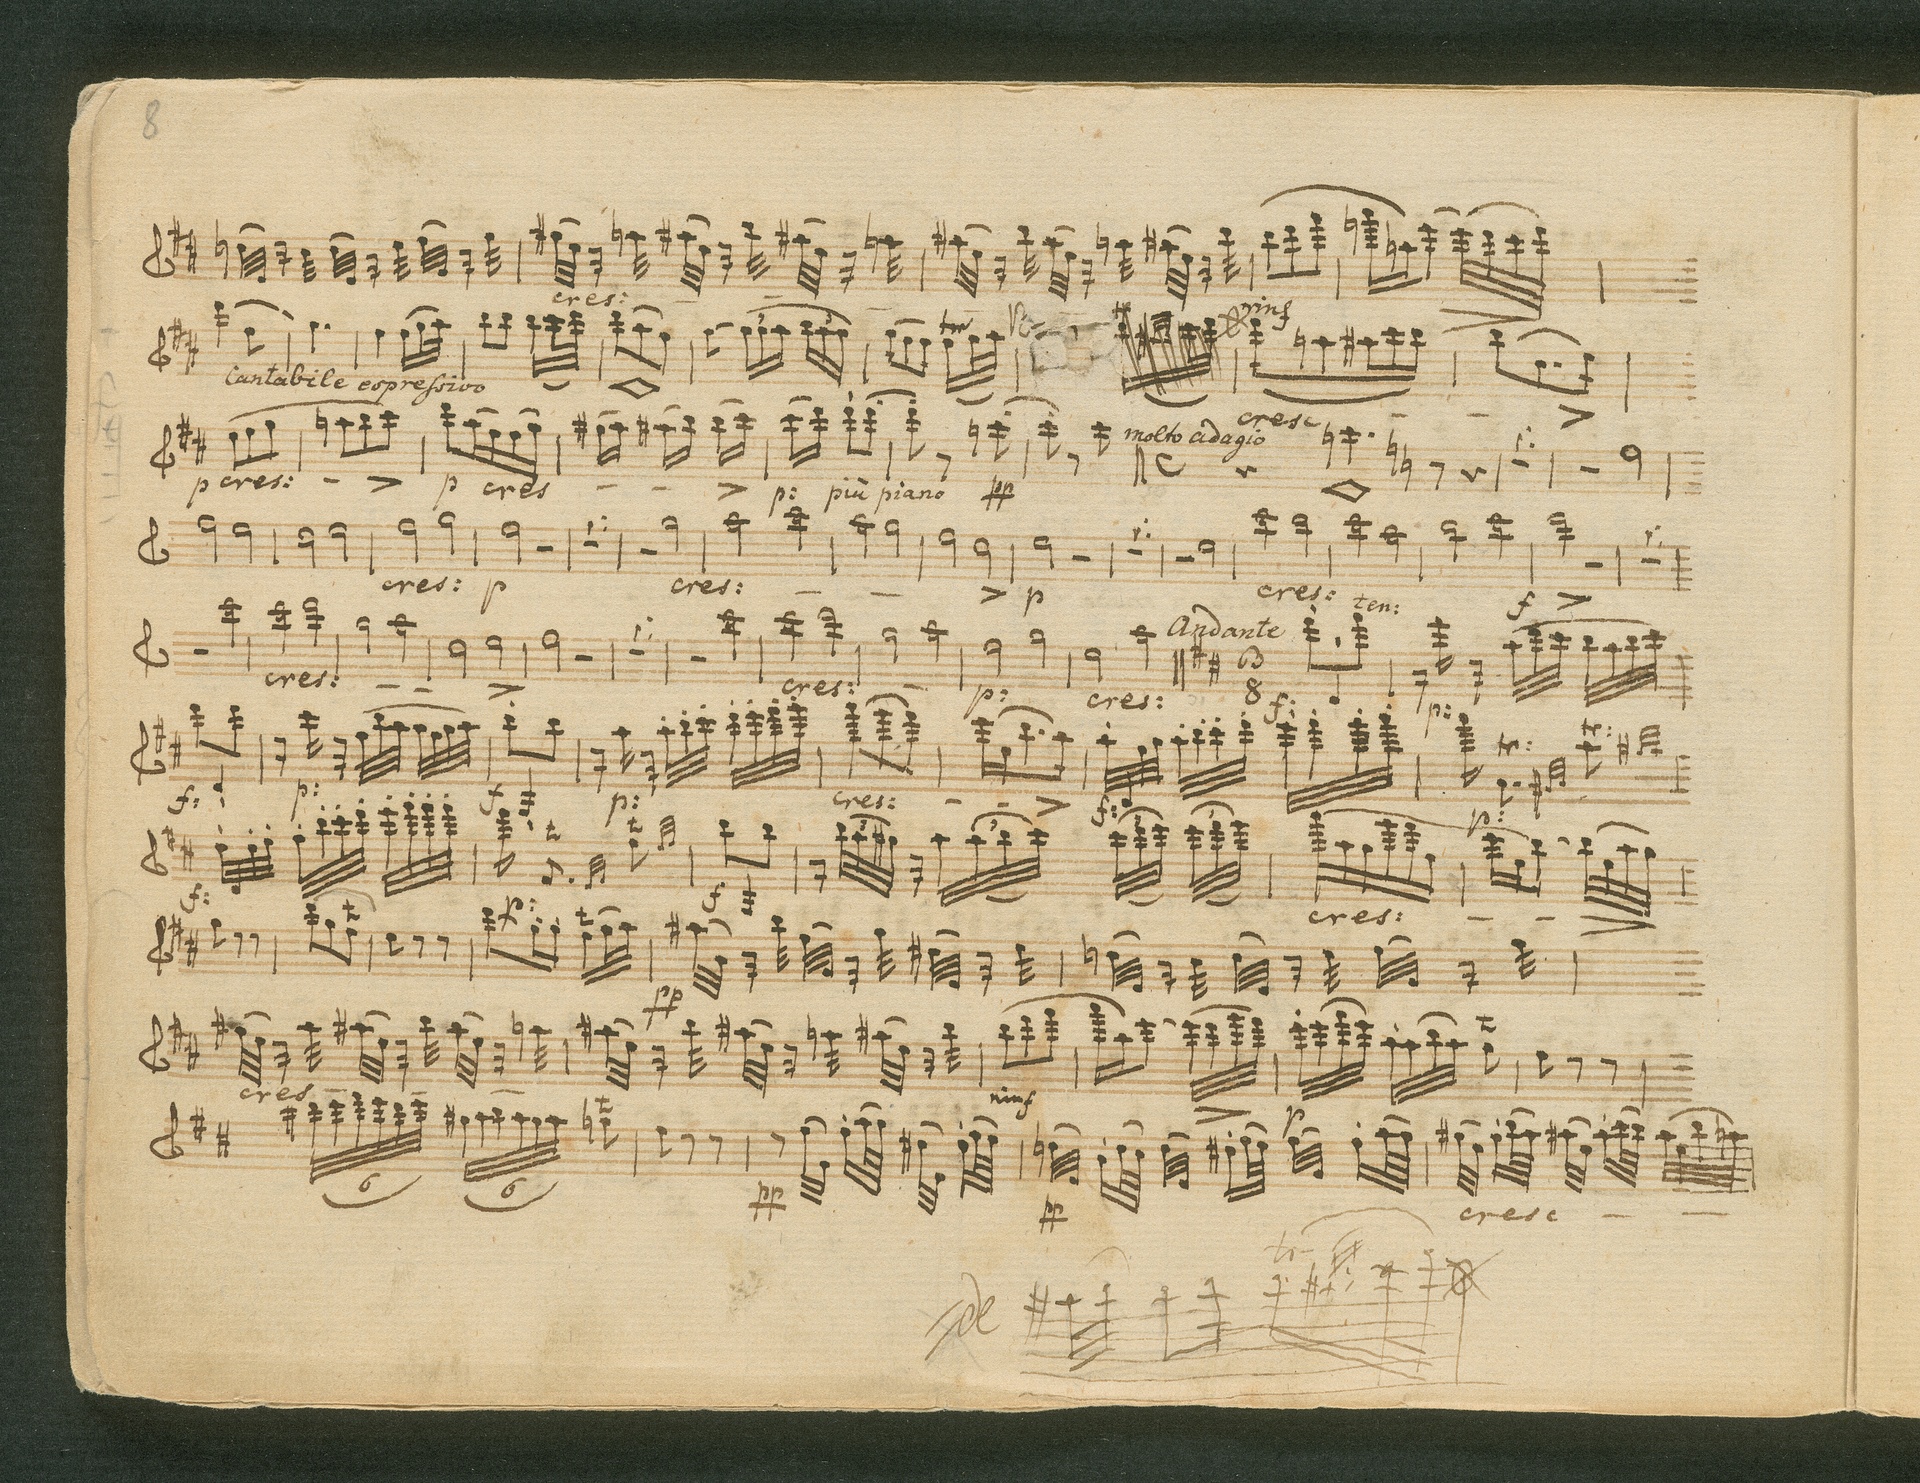 8
cres: - - -
cantabile espressivo
rinf
cresc - -
p cres: - p cres - - p: più piano pp molto adagio
cres: p cres: - - p cres: f
ten:
Andante
cres: - - cres: - p: cres: 3 8 f: p:
f: p: f p: cres: - - f: tr: tr:
p:
f: f cres: - -
p:
pp
cres - - - rinf p
6 6 pp pp cresc - -
tr